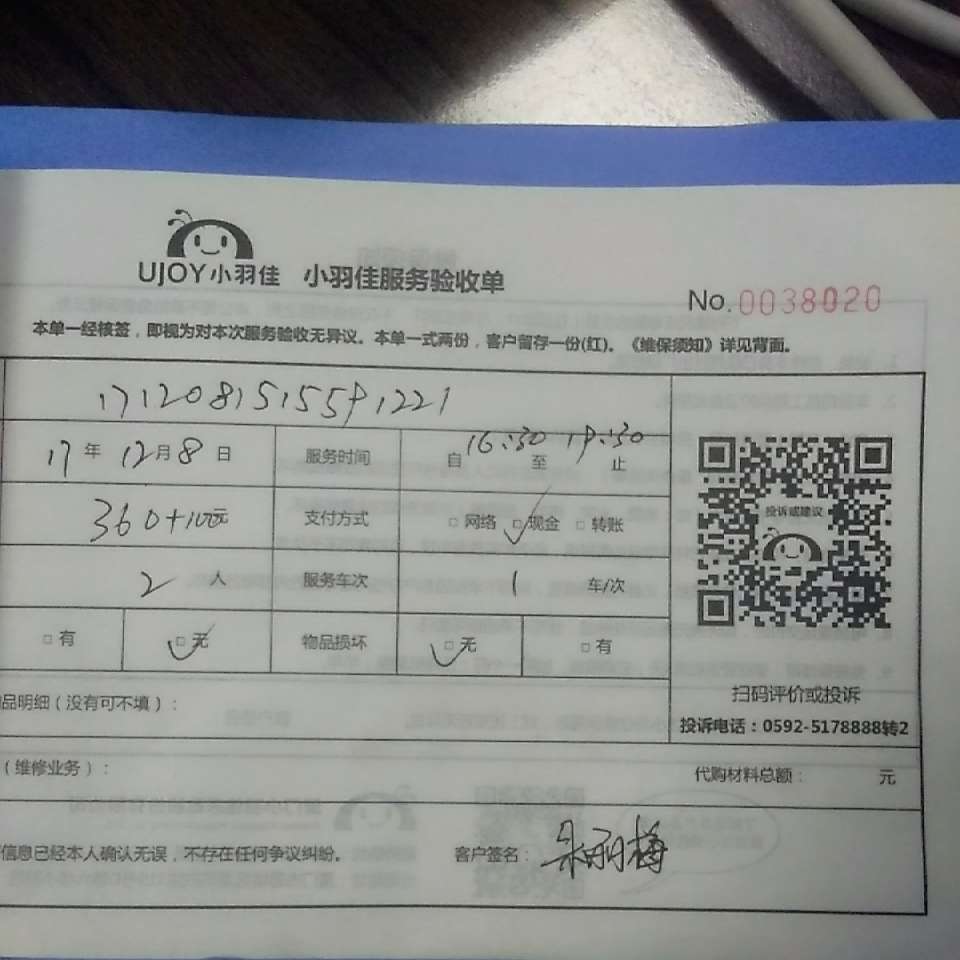 UJOY小羽佳 小羽佳服务验收单
No.0038020
本单一经核签，即视为对本次服务验收无异议。本单一式两份，客户留存一份(红)。《维保须知》详见背面。
1712081515591221
17年12月8日 服务时间 自16:30至19:30止
360+100元 支付方式 □网络 □现金 □转账
2人 服务车次 1车/次
□有 □无 物品损坏 □无 □有
投诉或建议
扫码评价或投诉
投诉电话：0592-5178888转2
品明细（没有可不填）：
（维修业务）： 代购材料总额： 元
信息已经本人确认无误，不存在任何争议纠纷。 客户签名：